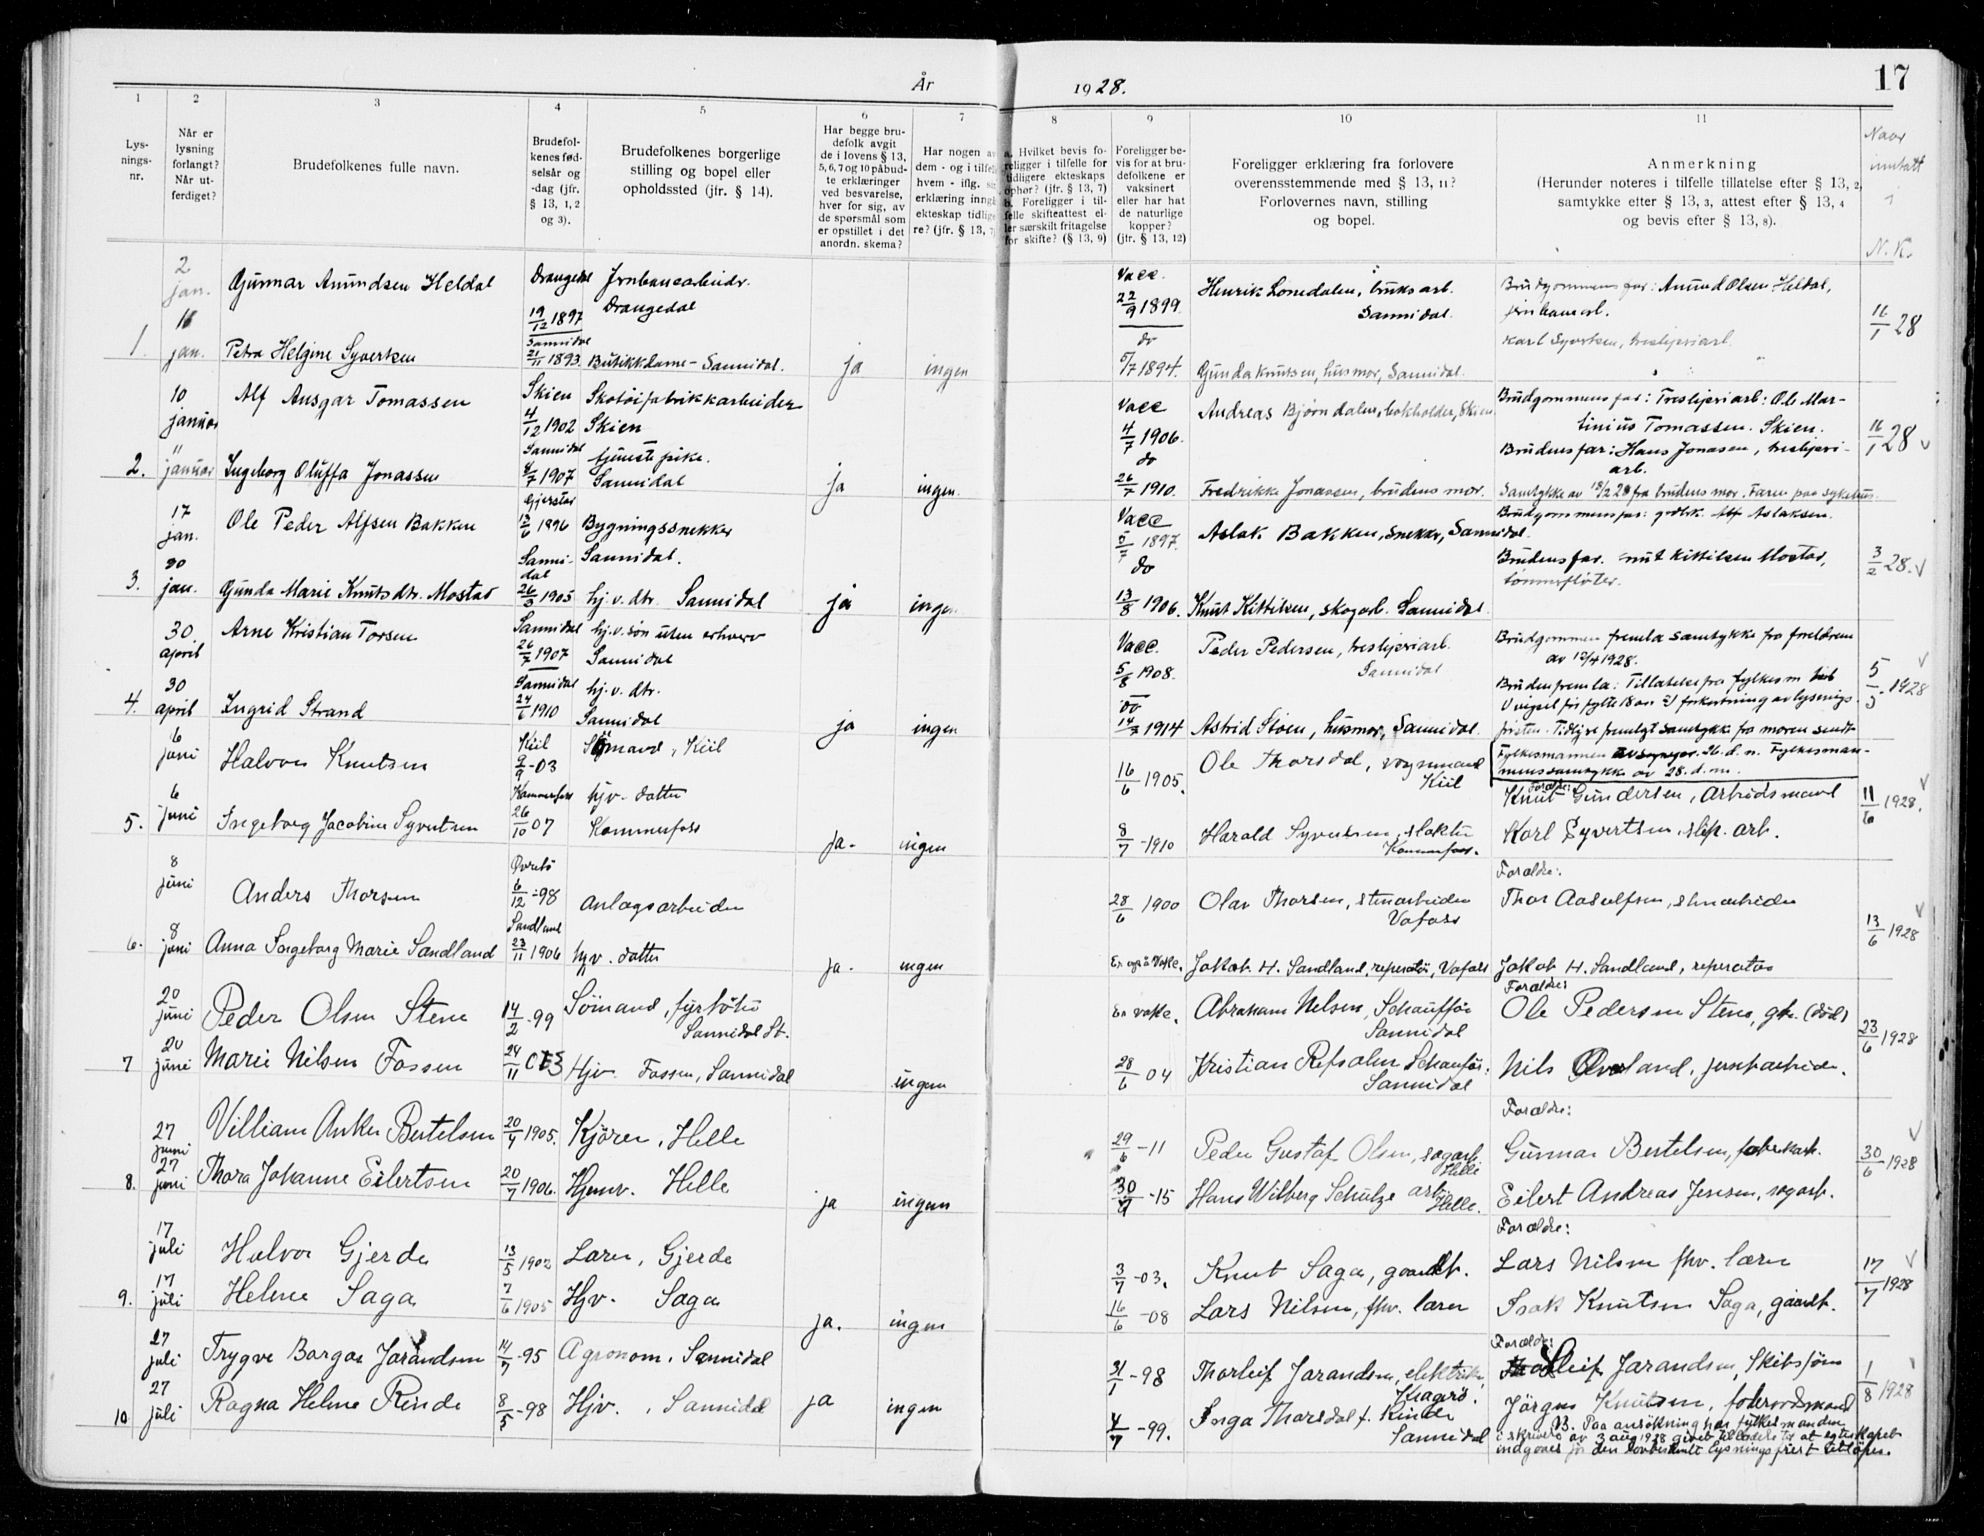 År 1928.
17
1 2 3 4 5 6 7 8 9 10 11
Lysningsnr.
Når er lysning forlangt? Når utferdiget?
Brudefolkenes fulle navn.
Brudefolkenes fødselsår og -dag (jfr. § 13, 1, 2 og 3).
Brudefolkenes borgerlige stilling og bopel eller opholdssted (jfr. § 14).
Har begge brudefolk avgit de i lovens § 13, 5, 6, 7 og 10 påbudte erklæringer ved besvarelse, hver for sig, av de spørsmål som er opstillet i det anordn. skema?
Har nogen a dem - og i tilfel hvem - iflg. si erklæring inngå ekteskap tidlige re? (jfr. § 13, 7)
a. Hvilket bevis foreligger i tilfelle for tidligere ekteskaps ophør? (jfr. § 13, 7) b. Foreligger i tilfelle skifteattest eller særskilt fritagelse for skifte? (§ 13, 9)
Foreligger bevis for at brudefolkene er vaksinert eller har hat de naturlige kopper? (jfr. § 13, 12)
Foreligger erklæring fra forlovere overensstemmende med § 13, 11? Forlovernes navn, stilling og bopel.
Anmerkning (Herunder noteres i tilfelle tillatelse efter § 13, 2, samtykke efter § 13, 3, attest efter § 13, 4 og bevis efter § 13, 8).
Naar inntatt i N.K.
2 jan. Gunnar Amundsen Heldal Drangedal 19/12 1897 Jrnbanearbeidr. Drangedal Vacc. 22/9 1899 Henrik Lonedalen, bruksarb. Sannidal. Brudgommens far: Amund Olsen Heldal, jernbanearb.
1. jan. Petra Helgine Syvertsen Sannidal 21/11 1893. Butikkdame - Sannidal. ja ingen do 5/7 1894. Gunda Knutsen, husmor, Sannidal. Karl Syvertsen, tresliperiarb. 16/1 28
10 januar Alf Ansgar Tomassen Skien 4/12 1902 Skotøifabrikkarbeider Skien Vacc 4/7 1906. Andreas Bjørndalen, bokholder, Skien Brudgommens far: Tresliperiarb: Ole Martinius Tomassen. Skien.
2. 11 januar Ingeborg Oluffa Jonassen Sannidal 8/7 1907 tjenestepike. Sannidal ja ingen. do 26/7 1910. Fredrikke Jonassen, brudens mor. Brudens far: Hans Jonasen, tresliperiarb. Samtykke av 13/2 28 fra brudens mor. Faren paa sykehus. 16/1 28
17 jan. Ole Peder Alfsen Bakken Gjerstad 13/6 1896 Bygningssnekker Sannidal. Vacc 5/7 1897. Aslak Bakken, snekker, Sannidal. Brudgommens far: gdbk. Alf Aslaksen.
3. 20 jan. Gunda Marie Knutsdtr. Mostad Sannidal 26/3 1905 hj. v. dtr. Sannidal ja ingen do 13/8 1906. Knut Kittilsen, skogarb. Sannidal. Brudens far. Knut Kittilsen Mostad, tømmerfløter. 3/2 28.
30 april Arne Kristian Torsen Sannidal 26/7 1907 hj. v. søn uten erhverv Sannidal Vacc. 5/8 1908. Peder Pedersen, tresliperiarb. Sannidal Brudgommen fremla samtykke fra forældrene av 12/4 1928.
4. 30 april Ingrid Strand Sannidal 24/6 1910 hj. v. dtr. Sannidal ja ingen do 14/7 1914 Astrid Stoen, husmor, Sannidal. Bruden fremla: Tillatelse fra fylkesm. til 1) vigsel før fylte 18 aar 2) forkortning av lysningsfristen. Tidligere fremlagt samtykke fra moren sendt Fylkesmannen 26. d. m. Fylkesmannens samtykke av 28. d. m. 5/5 1928
6 juni Halvor Knutsen Kiil 9/9 -03 Sømand, Kiil 16/6 - 1905. Ole Thorsdal, vognmand Kiil Forældre: Knut Gundersen, Arbeidsmand
5. 6 juni Ingeborg Jacobine Syvertsen Kammerfoss 26/10 07 hjv. datter Kammerfoss ja. ingen 8/7 - 1910 Harald Syvertsen, slakter Kammerfoss. Karl Syvertsen, slip. arb. 11/6 1928.
8 juni Anders Thorsen 6/12 -98 Anlægsarbeider 28/6 1900 Olav Thorsen, stenarbeider Vafoss Forældre: Thor Aasulfsen, stenarbeider
6. 8 juni Anna Ingeborg Marie Sandland Sandland 23/11 1906 hjv. datter ja. ingen Er også Vakc. Jakob H. Sandland, reperatør, Vafoss Jakob H. Sandland, reperatør 13/6 1928
20 juni Peder Olsen Stene 14/2 -99 Sømand, fyrbøter Sannidal St. Er vakc. Abraham Nelsen, Schauffør Sannidal Forældre: Ole Pedersen Stene, gbr. (død)
7 20 juni Marie Nilsen Fossen 24/11 03 Hjv. Fossen, Sannidal ingen 28/6 04 Kristian Refsalen Schauffør. Sannidal Nils Øverland, jernbarbeider. 23/6 1928
27 juni Villiam Anker Bertelsen 20/4 1905. Kjører, Helle 29/6 -11 Peder Gustaf Olsen, sagarb. Helle Forældre: Gunnar Bertelsen, fabrikarb.
8. 27 juni Thora Johanne Eilertsen 20/7 1906. Hjemv. Helle ja ingen 30/9 -15 Hans Wilberg Schulze arb. Helle. Eilert Andreas Jensen, sagarb. 30/6 1928
17 juli Halvor Gjerde 13/5 1902 Lærer, Gjerde 3/7 -03. Knut Saga, gaardbr. Forældre: Lars Nilsen fhv. lærer
9. 17 juli Helene Saga 7/6 1905 Hjv. Saga ja. ingen 16/6 -08 Lars Nilsen, fhv. lærer Isak Knutsen Saga, gaardb. 17/7 1928
27 juli Trygve Borgar Jarandsen 14/7 -95 Agronom, Sannidal 31/1 -98 Thorleif Jarandsen, elektriker, Kragerø. Forældre: Leif Jarandsen, Skibsføre
10 27 juli Ragna Helene Rinde 8/5 -98 Hjv. , Sannidal ja ingen 4/7 -99. Inga Thorsdal f. Rinde Sannidal Jørgen Knutsen, forhenrordsmand
B. Paa ansøkning har fylkesmanden i skrivelse av 3 aug 1928 givet tilladelse til at egteskapet indgaaes før den lovbestemte lysningsfrist utløper. 1/8 1928